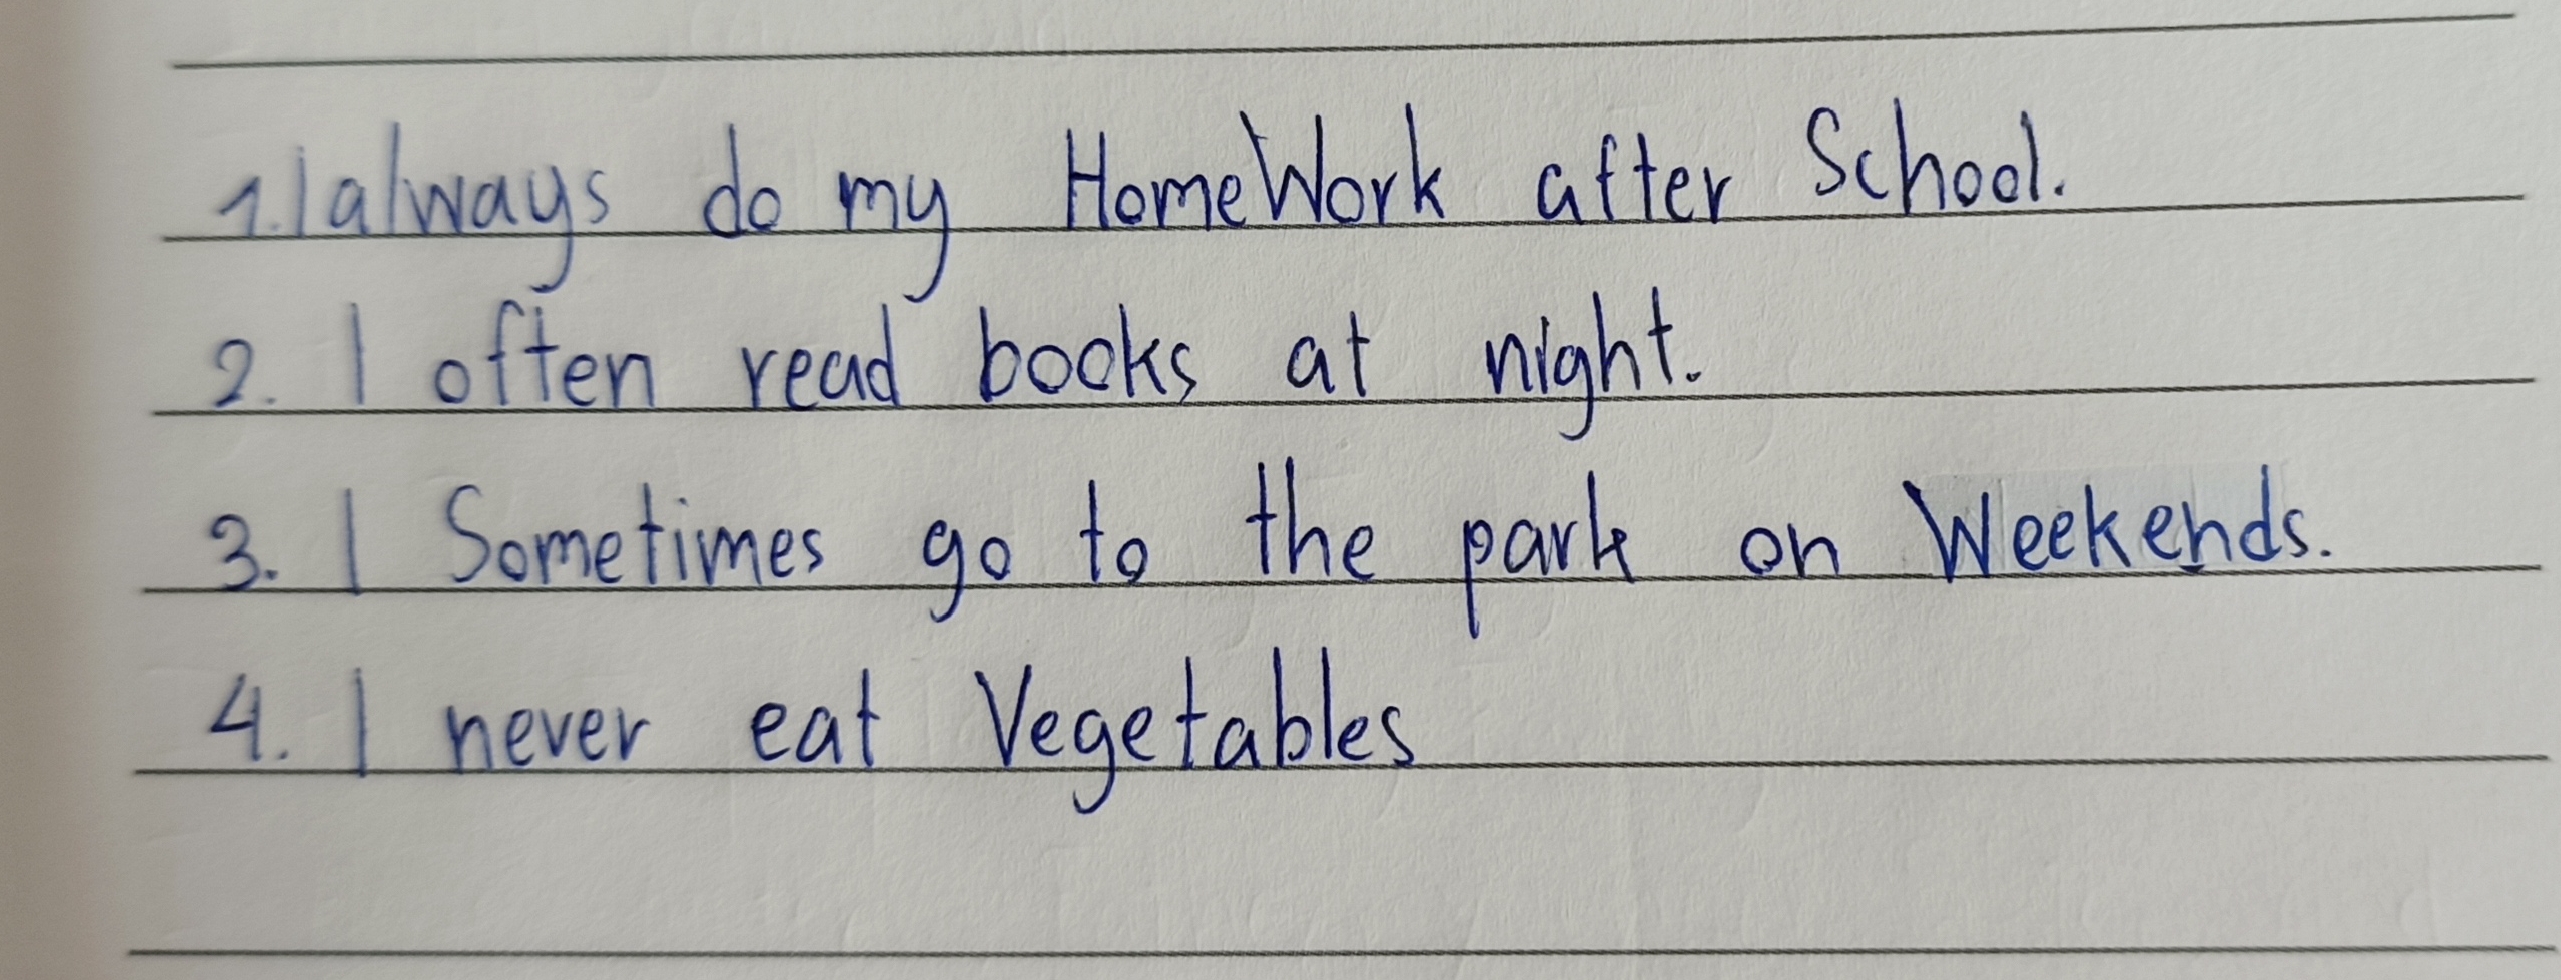 1. I always do my HomeWork after School.
2. I often read books at night.
3. I Sometimes go to the park on Weekends.
4. I never eat Vegetables